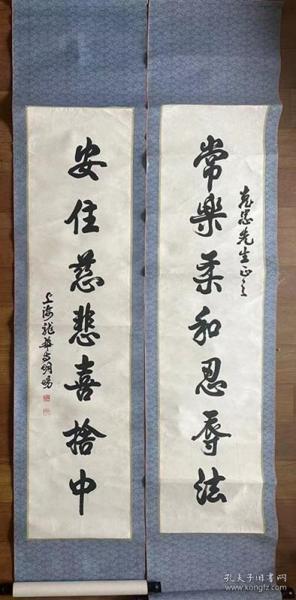 常樂柔和忍辱法
先生正之
安住慈悲喜捨中
上海龍華古剎明暘
孔夫子旧书网